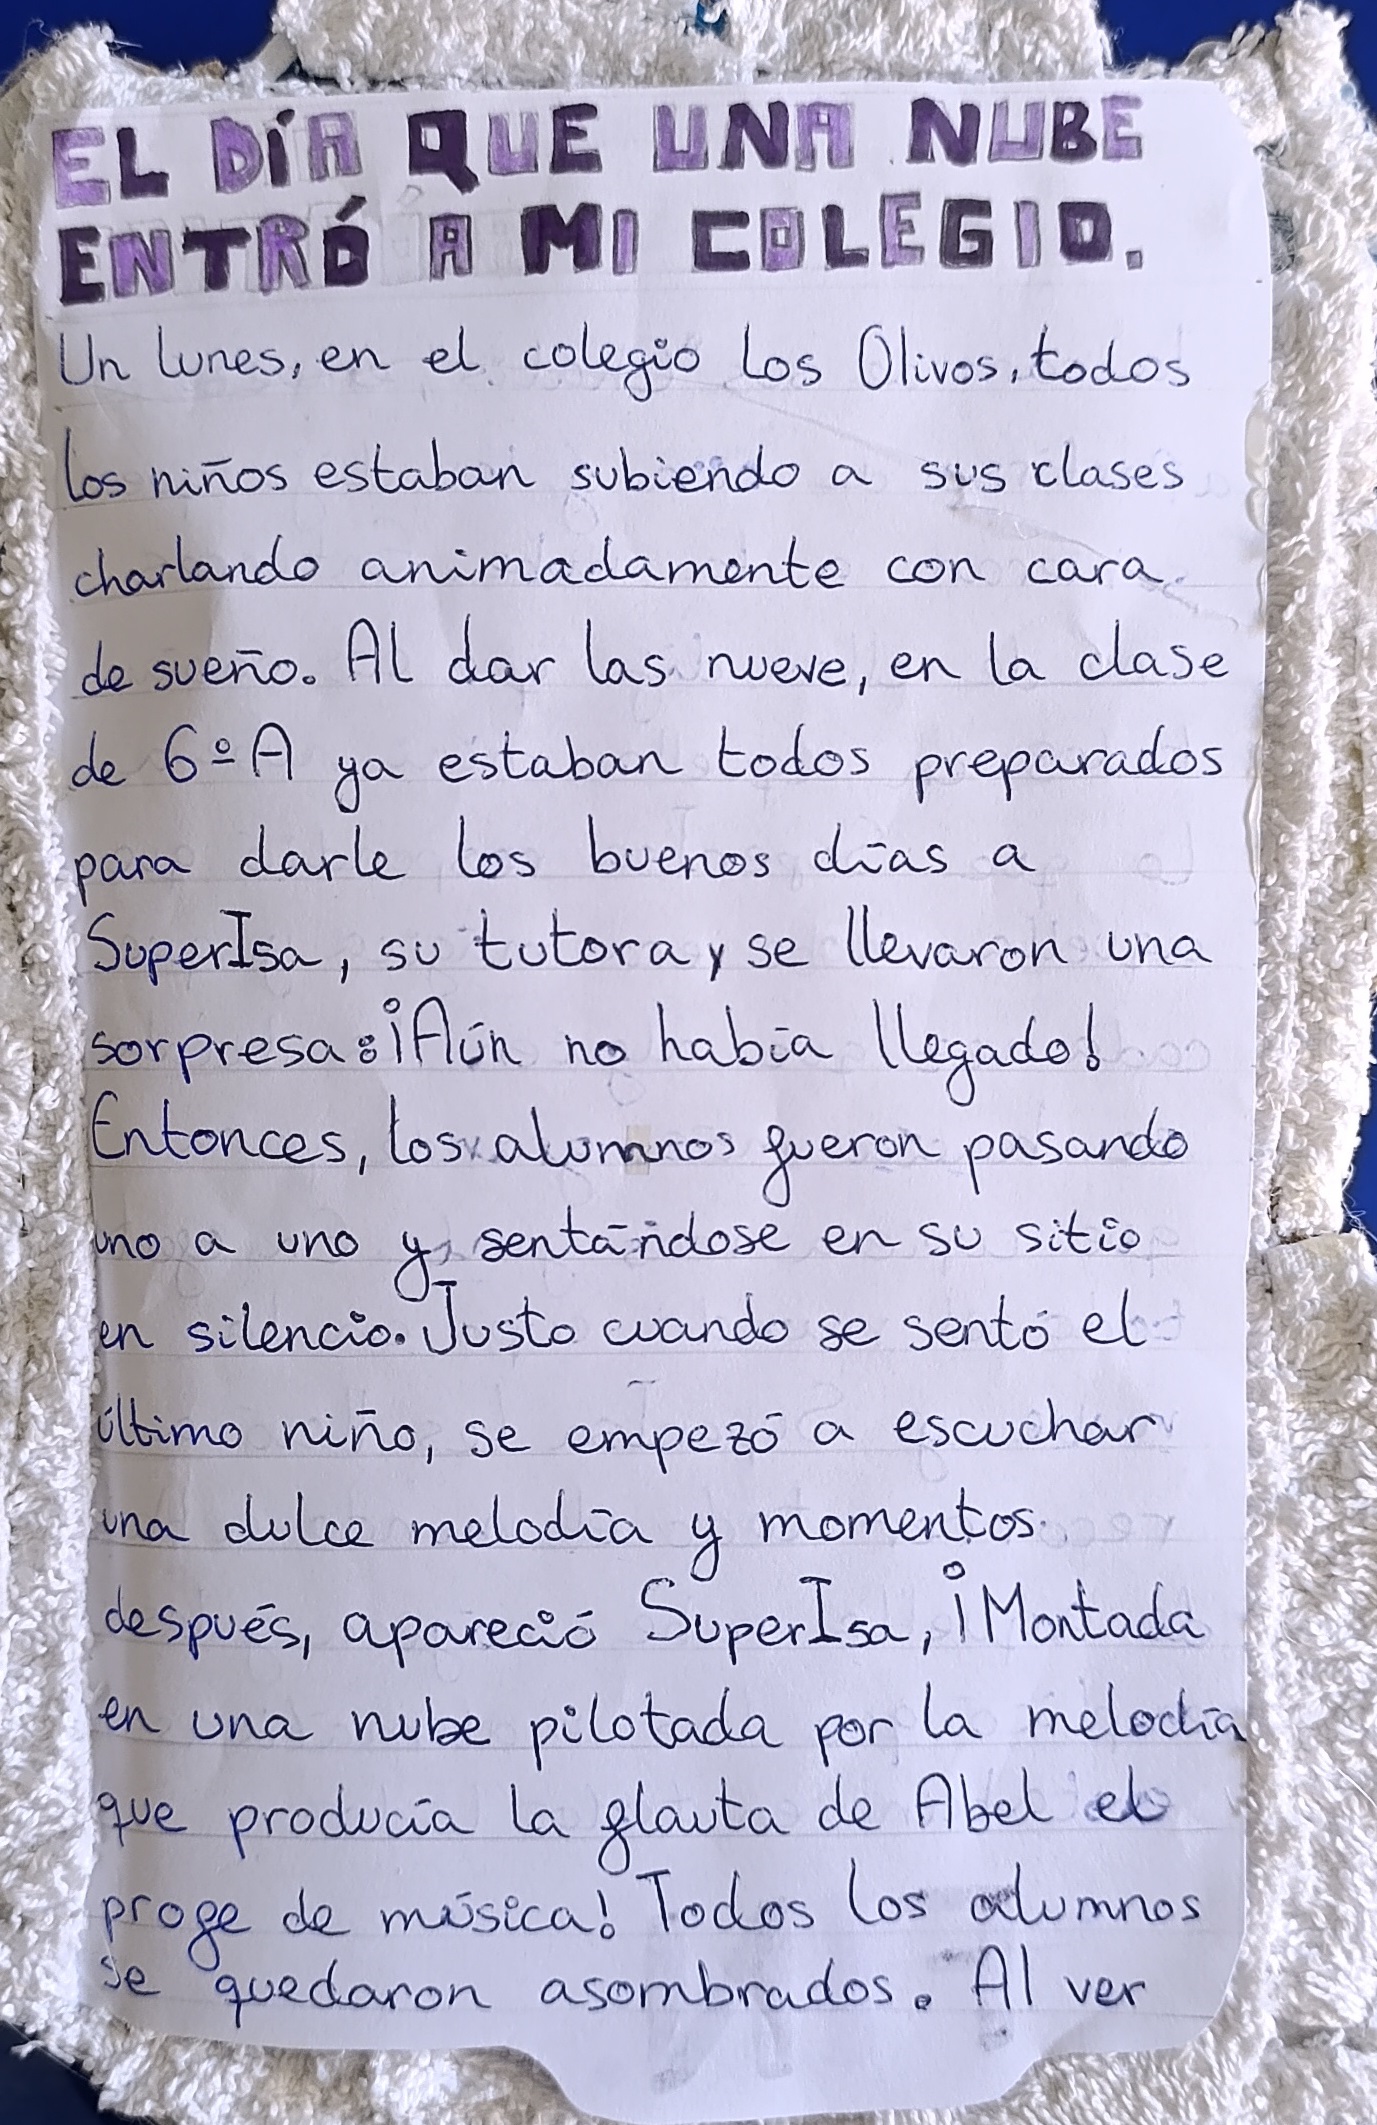 EL DÍA QUE UNA NUBE
ENTRÓ A MI COLEGIO.
Un lunes, en el colegio Los Olivos, todos
los niños estaban subiendo a sus clases
charlando animadamente con cara
de sueño. Al dar las nueve, en la clase
de 6º A ya estaban todos preparados
para darle los buenos días a
SuperIsa, su tutora y se llevaron una
sorpresa: ¡Aún no había llegado!
Entonces, los alumnos fueron pasando
uno a uno y sentándose en su sitio
en silencio. Justo cuando se sentó el
último niño, se empezó a escuchar
una dulce melodía y momentos
después, apareció SuperIsa, ¡Montada
en una nube pilotada por la melodía
que producía la flauta de Abel el
profe de música! Todos los alumnos
se quedaron asombrados. Al ver